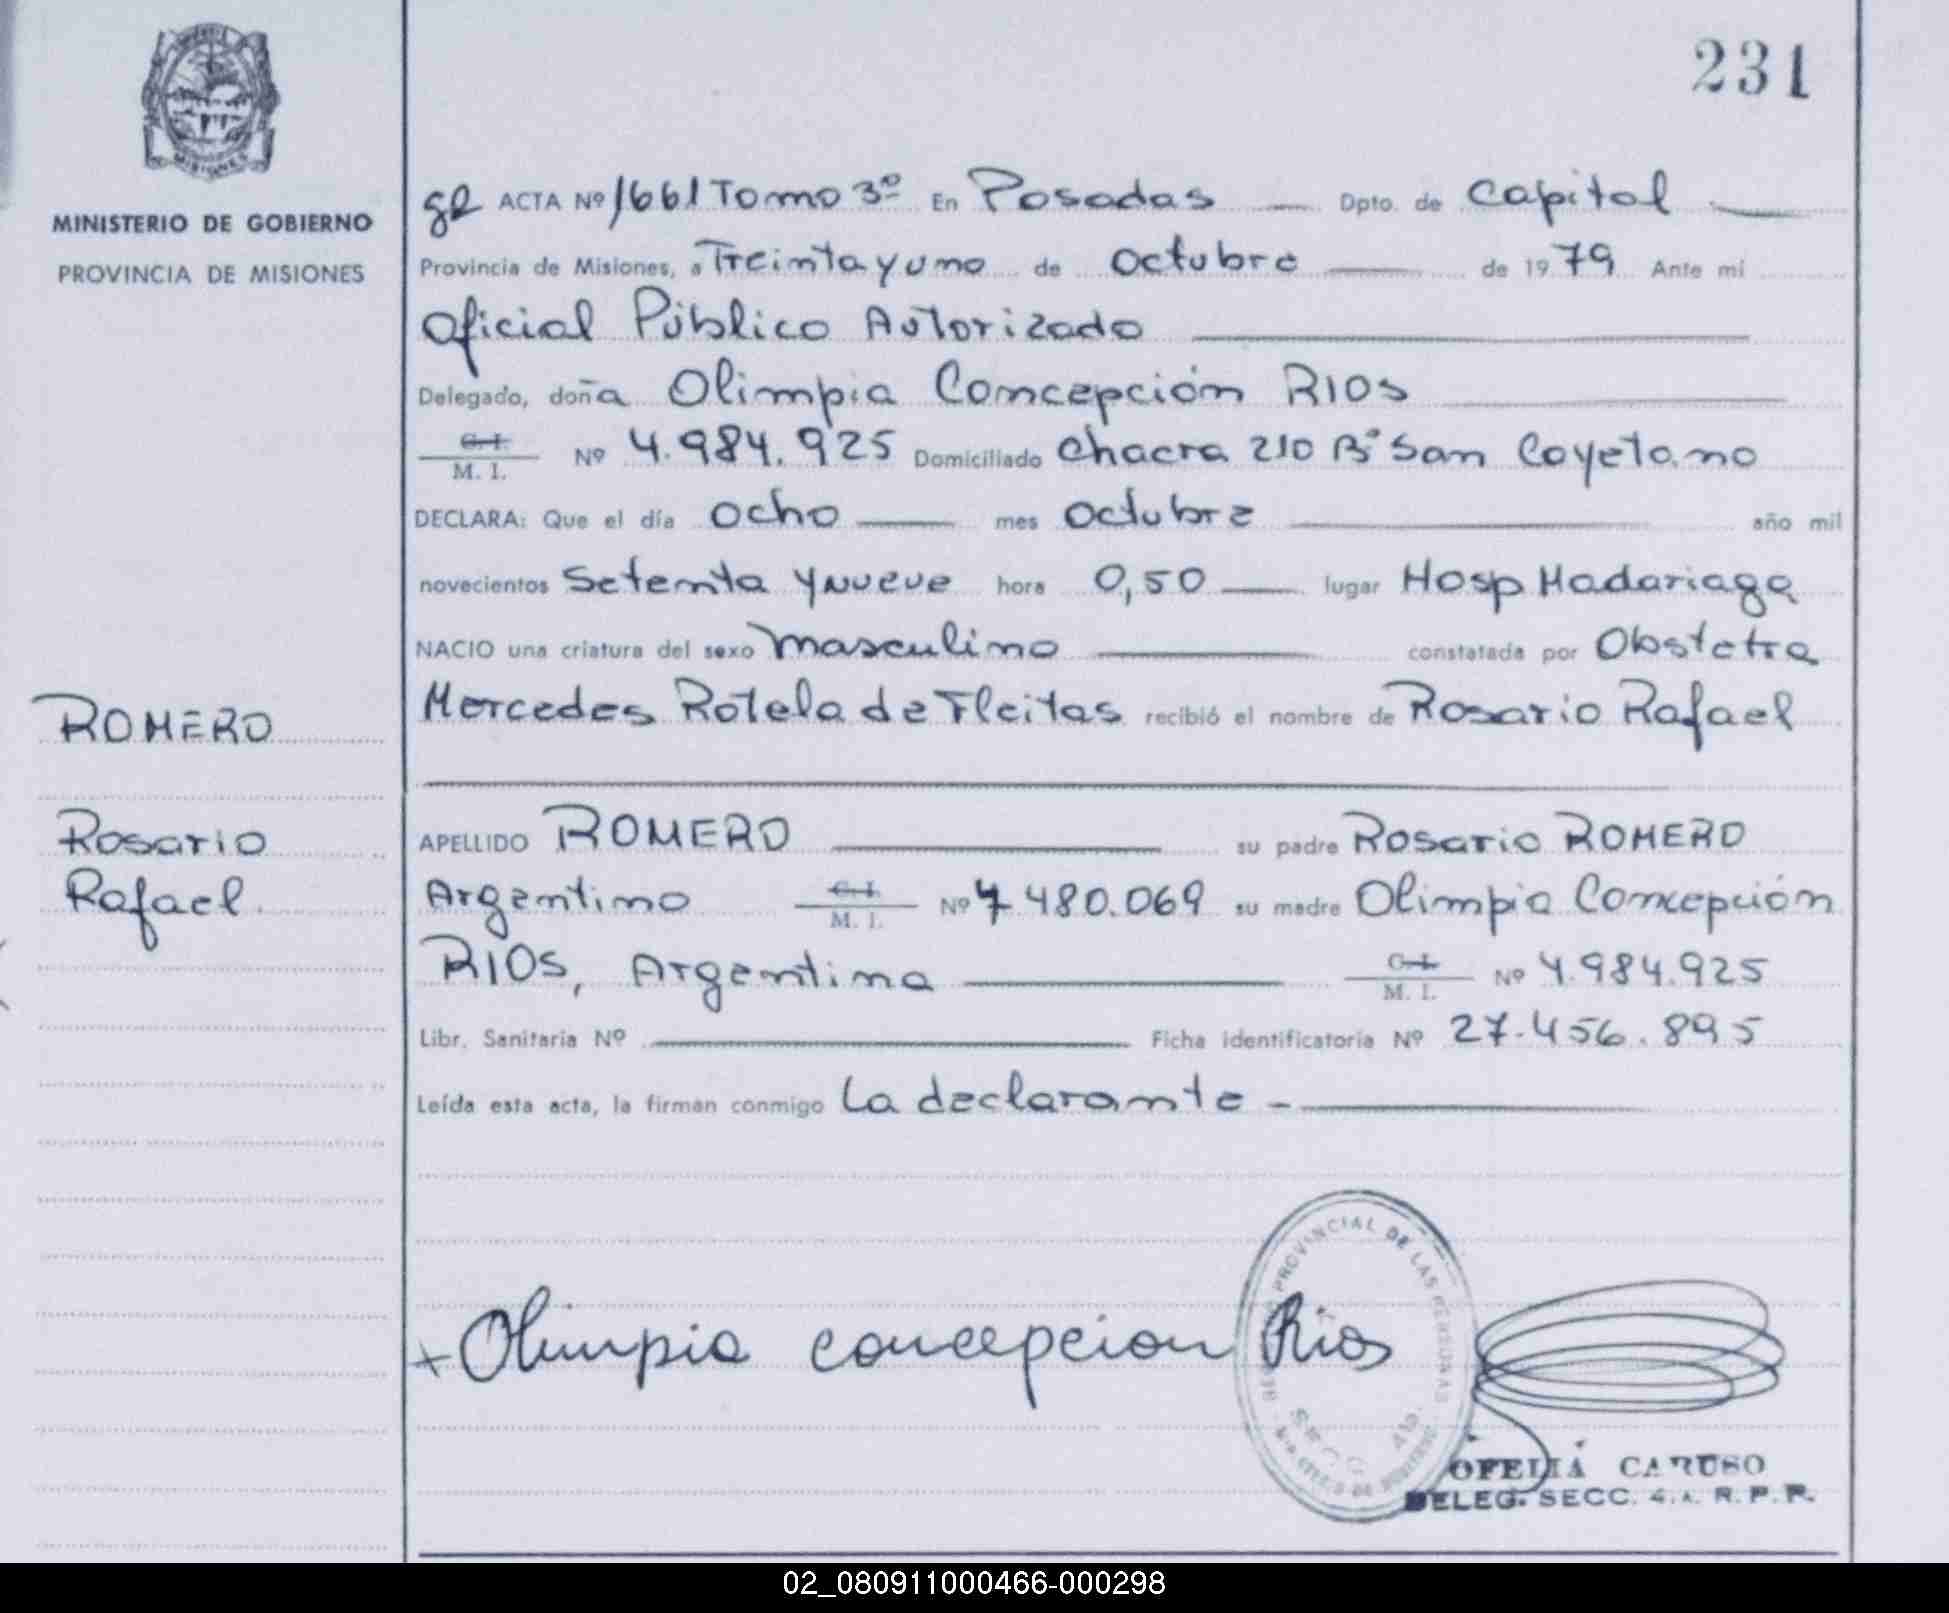 231
MINISTERIO DE GOBIERNO
PROVINCIA DE MISIONES
ACTA Nº 1661 Tomo 3º En Posadas Dpto. de Capital
Provincia de Misiones, a Treinta y uno de octubre de 1979 Ante mi
Oficial Público Autorizado
Delegado, doña Olimpia Concepción RIOS
C. I.
M. I. Nº 4.984.925 Domiciliado Chacra 210 Bº San Cayetano
DECLARA: Que el día ocho mes octubre año mil
novecientos setenta y nueve hora 0,50 lugar Hosp Madariaga
NACIO una criatura del sexo masculino constatada por Obstetra
Mercedes Rotela de Fleitas recibió el nombre de Rosario Rafael
ROMERO
Rosario
Rafael
APELLIDO ROMERO su padre Rosario ROMERO
Argentino C. I. M. I. Nº 7.480.069 su madre Olimpia Concepción
RIOS, Argentina C. I. M. I. Nº 4.984.925
Libr. Sanitaria Nº Ficha identificatoria Nº 27.456.895
Leída esta acta, la firman conmigo La declarante -
PROVINCIAL DE LAS PERSONAS
Olimpia concepcion Rios
OFELIA CARUSO
DELEG. SECC. 4.A. R.P.P.
02_080911000466-000298